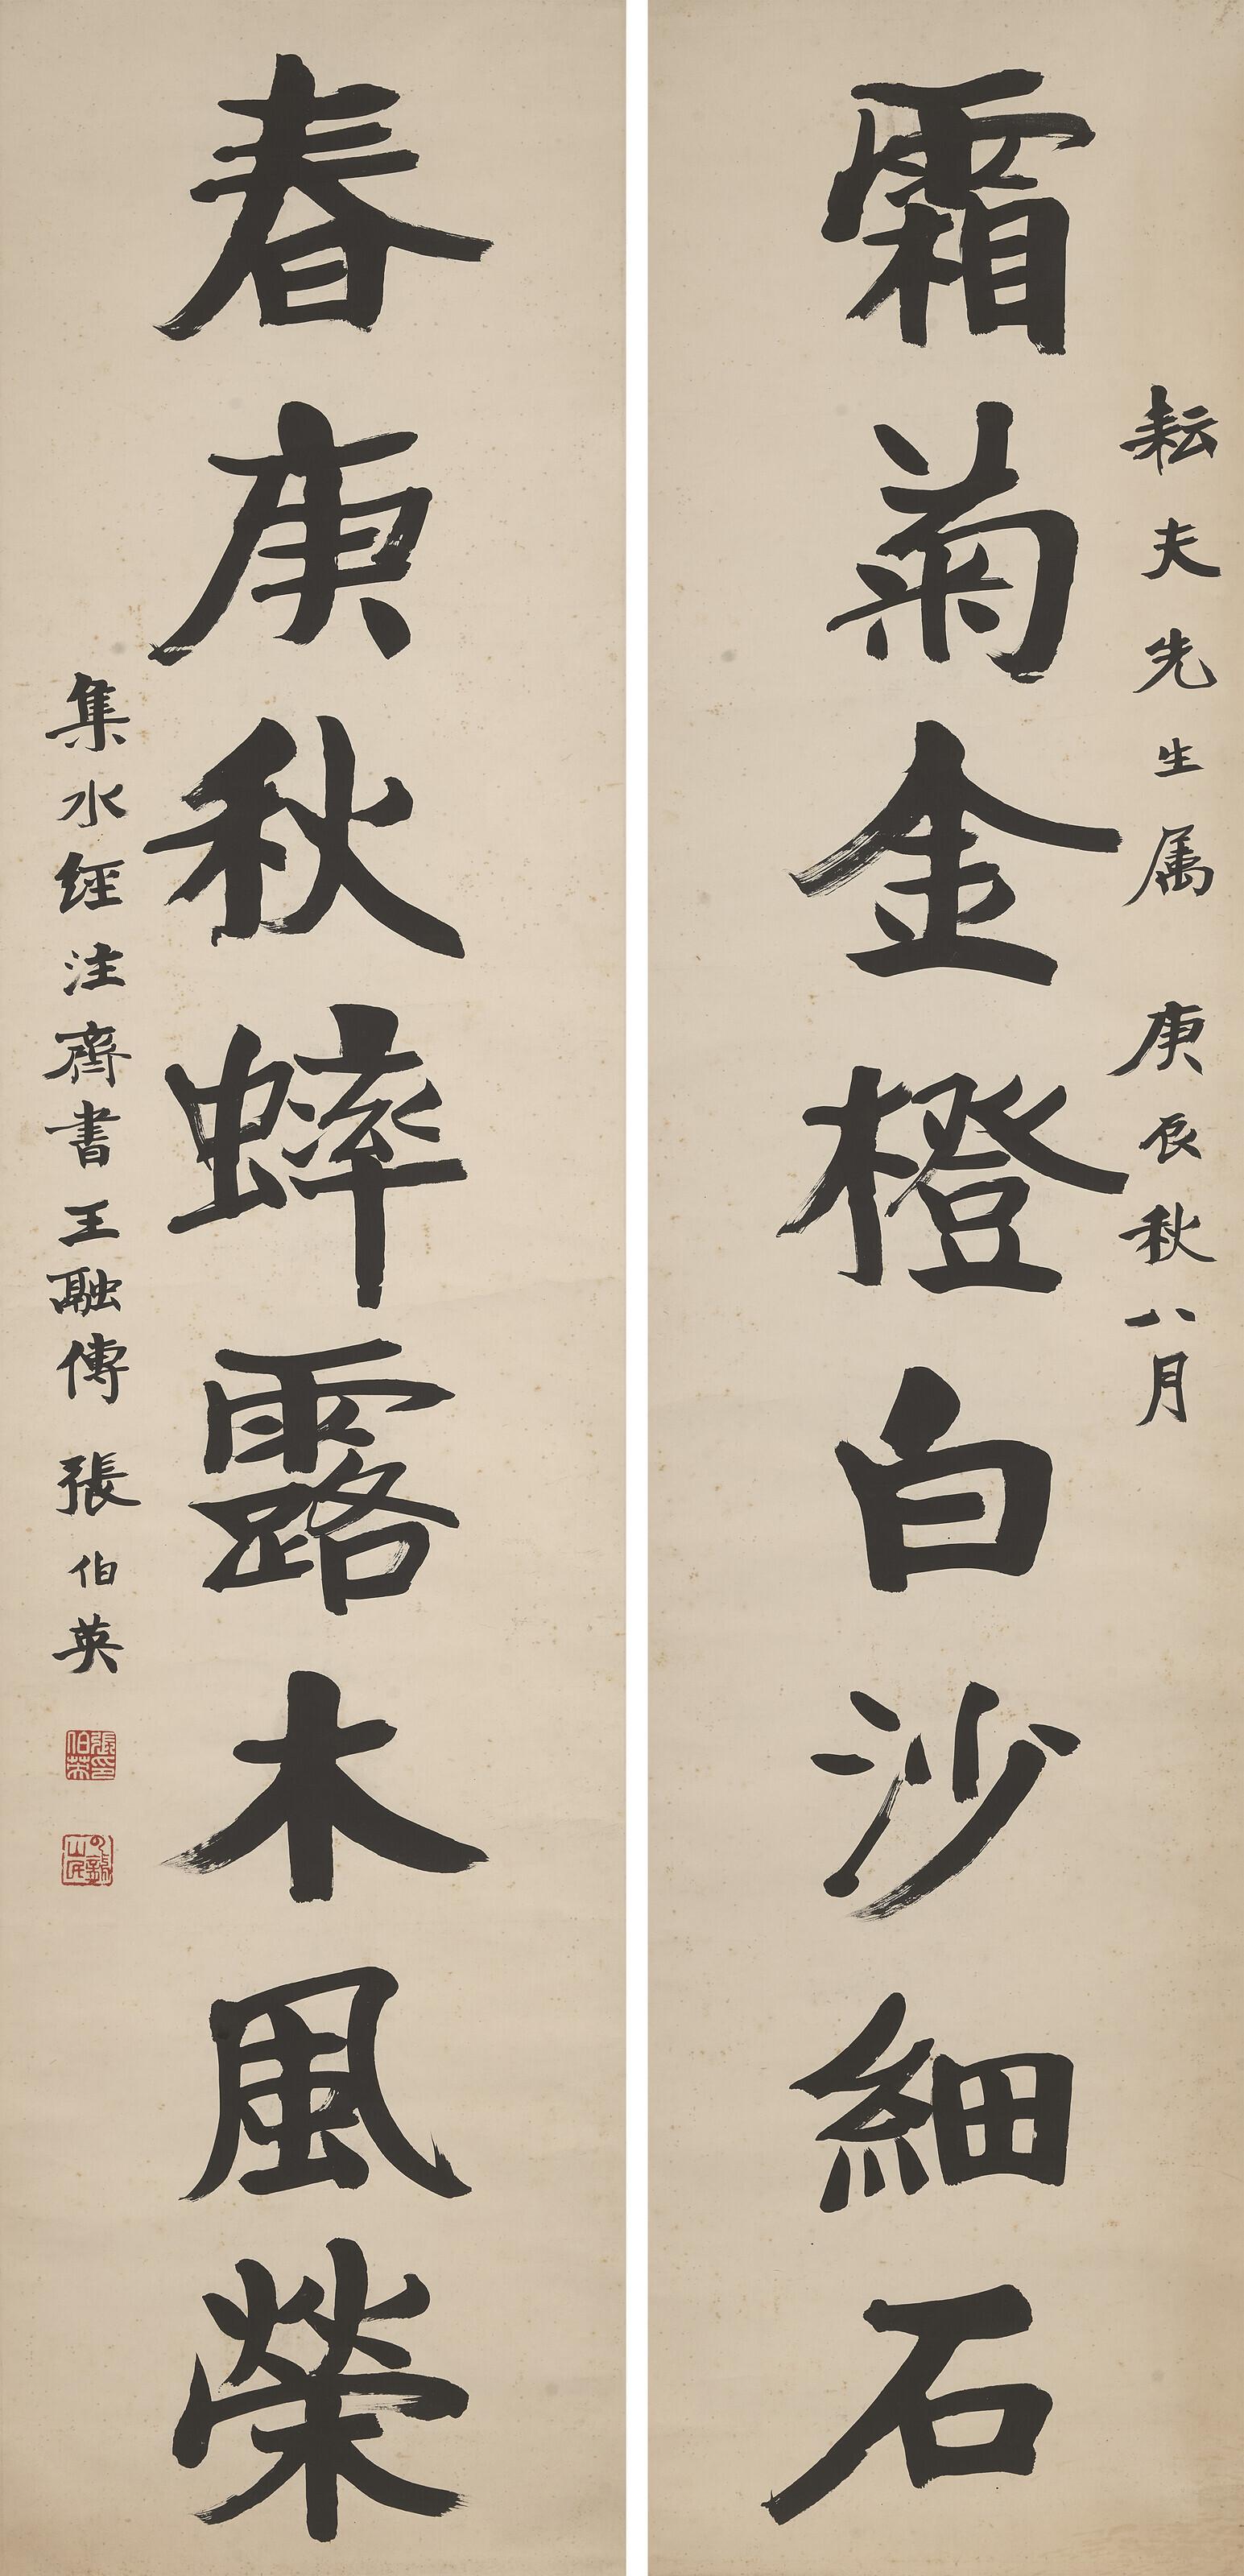 耘夫先生属 庚辰秋八月
霜菊金橙白沙細石
春庚秋蟀露木風榮
集水經注齊書王融傳 張伯英
張伯英印